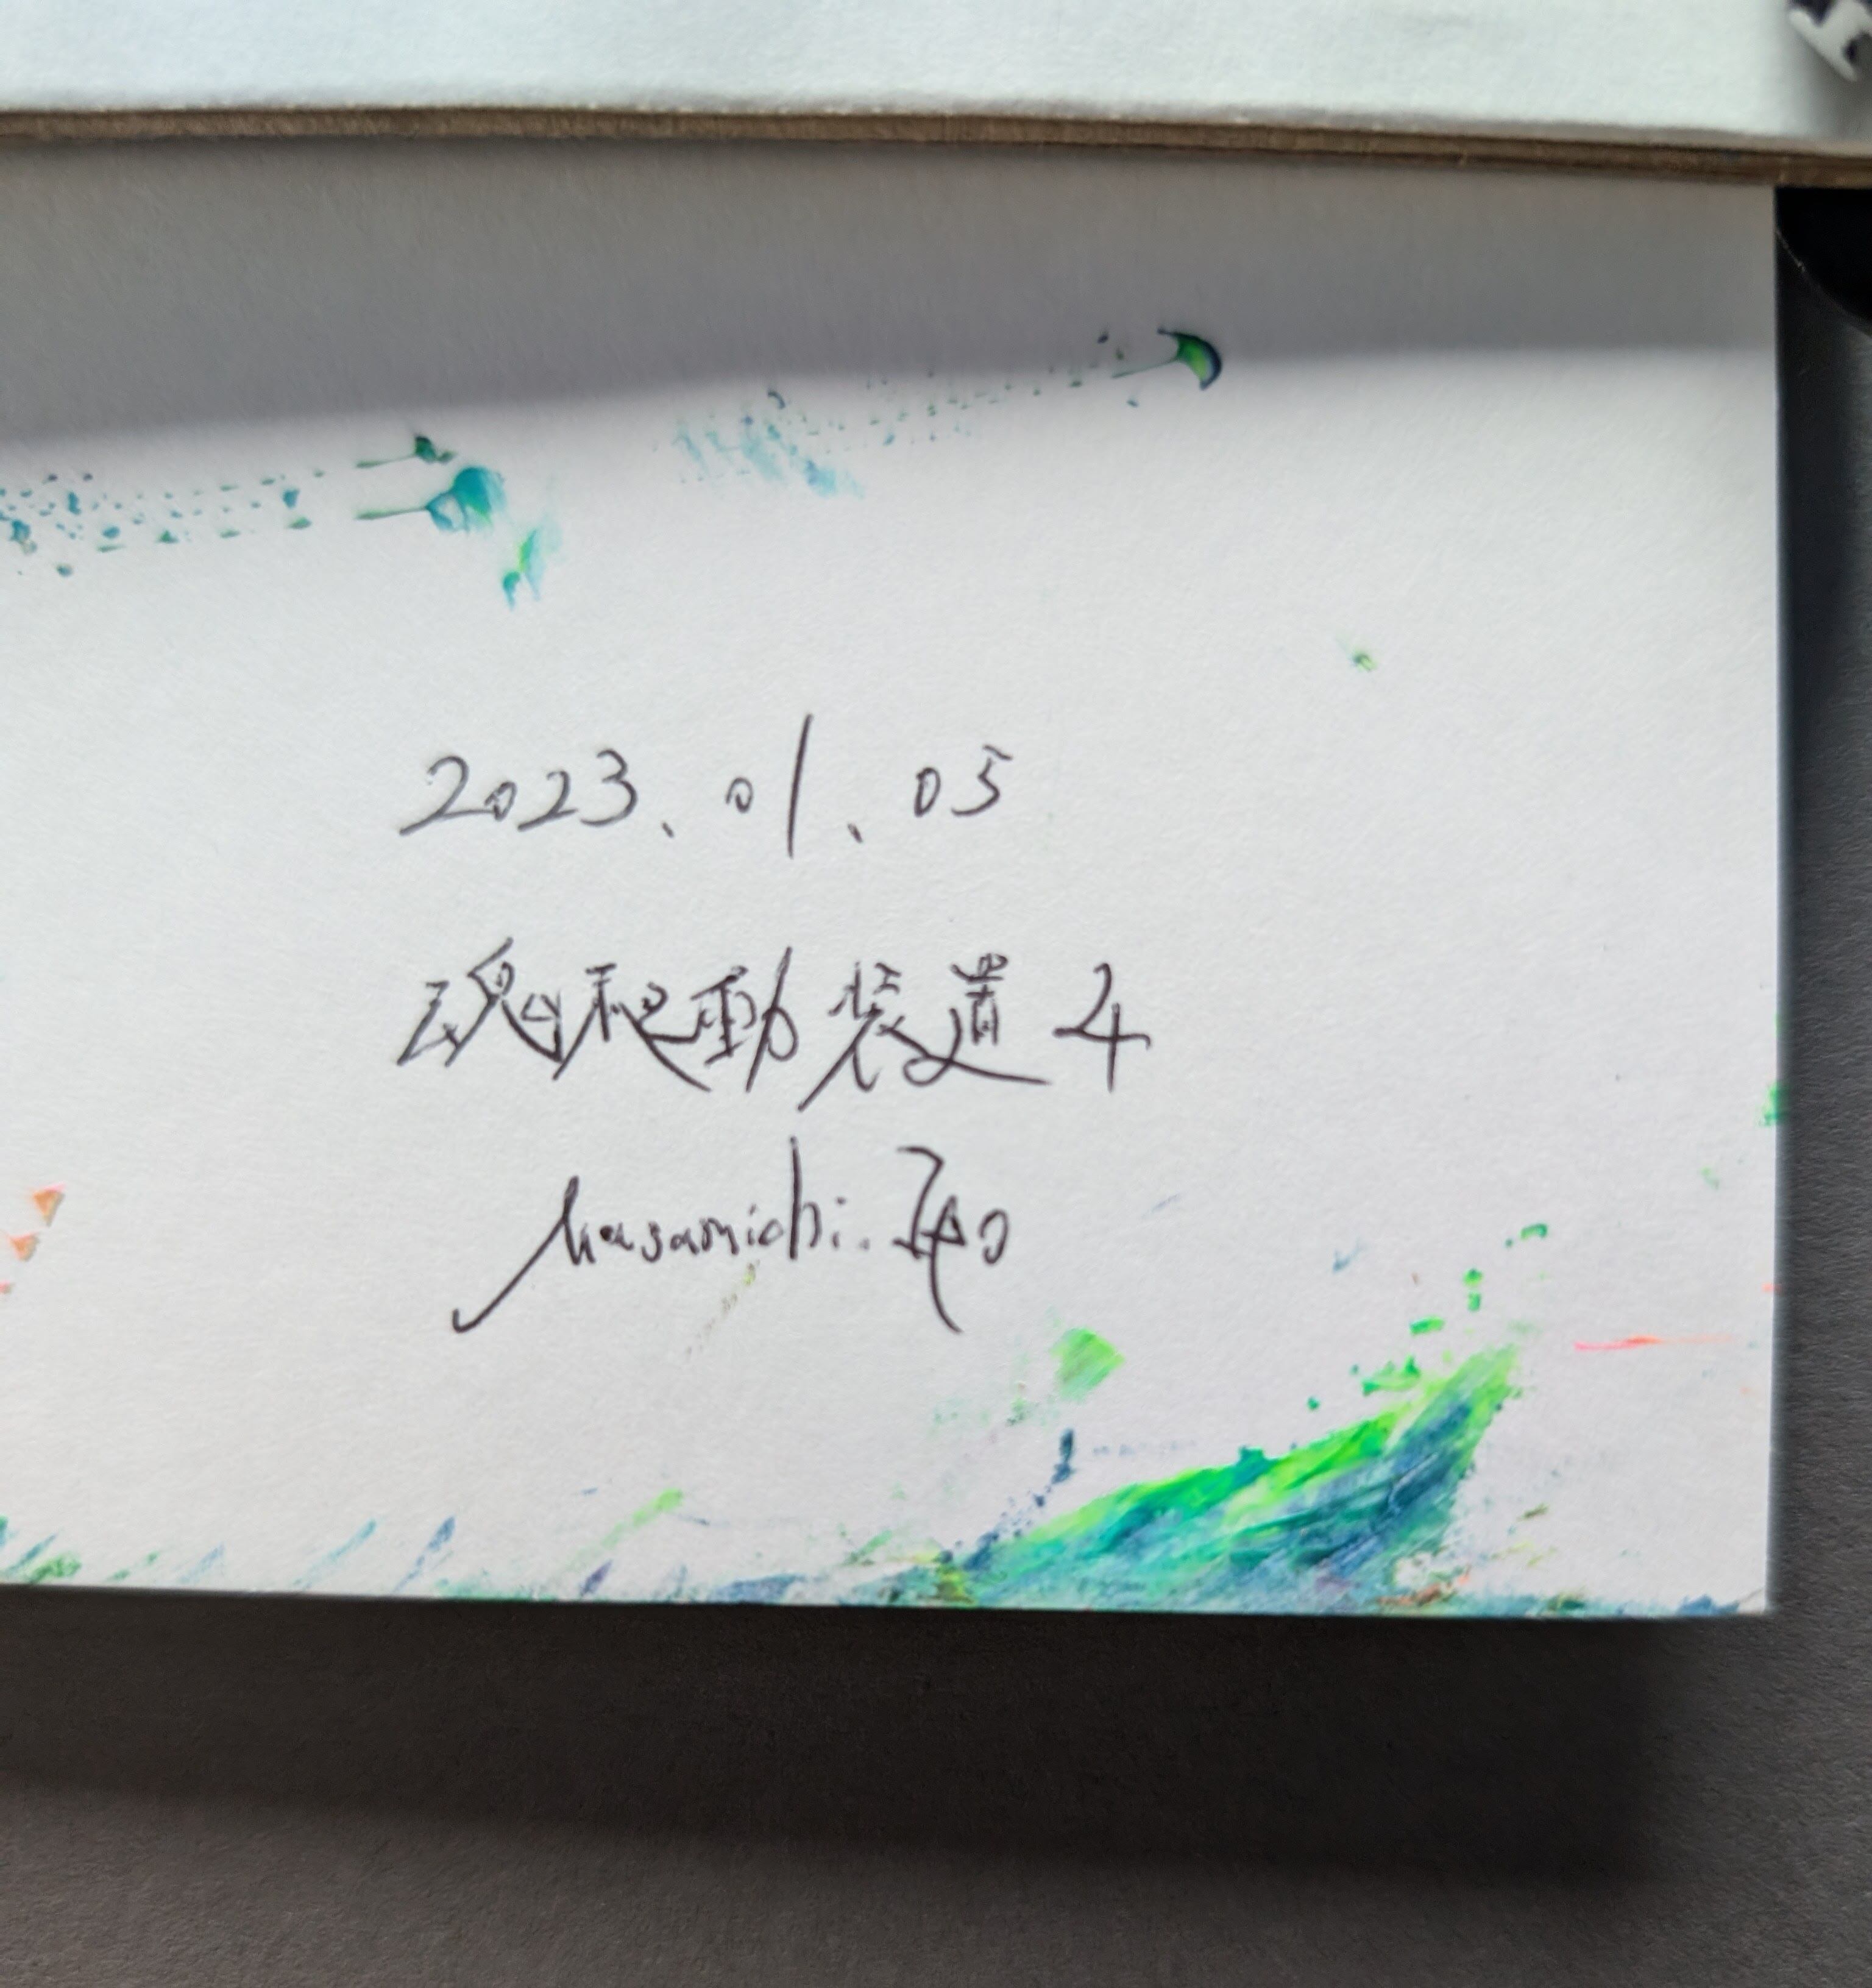 2023.01.05
魂起動装置4
Masamichi.